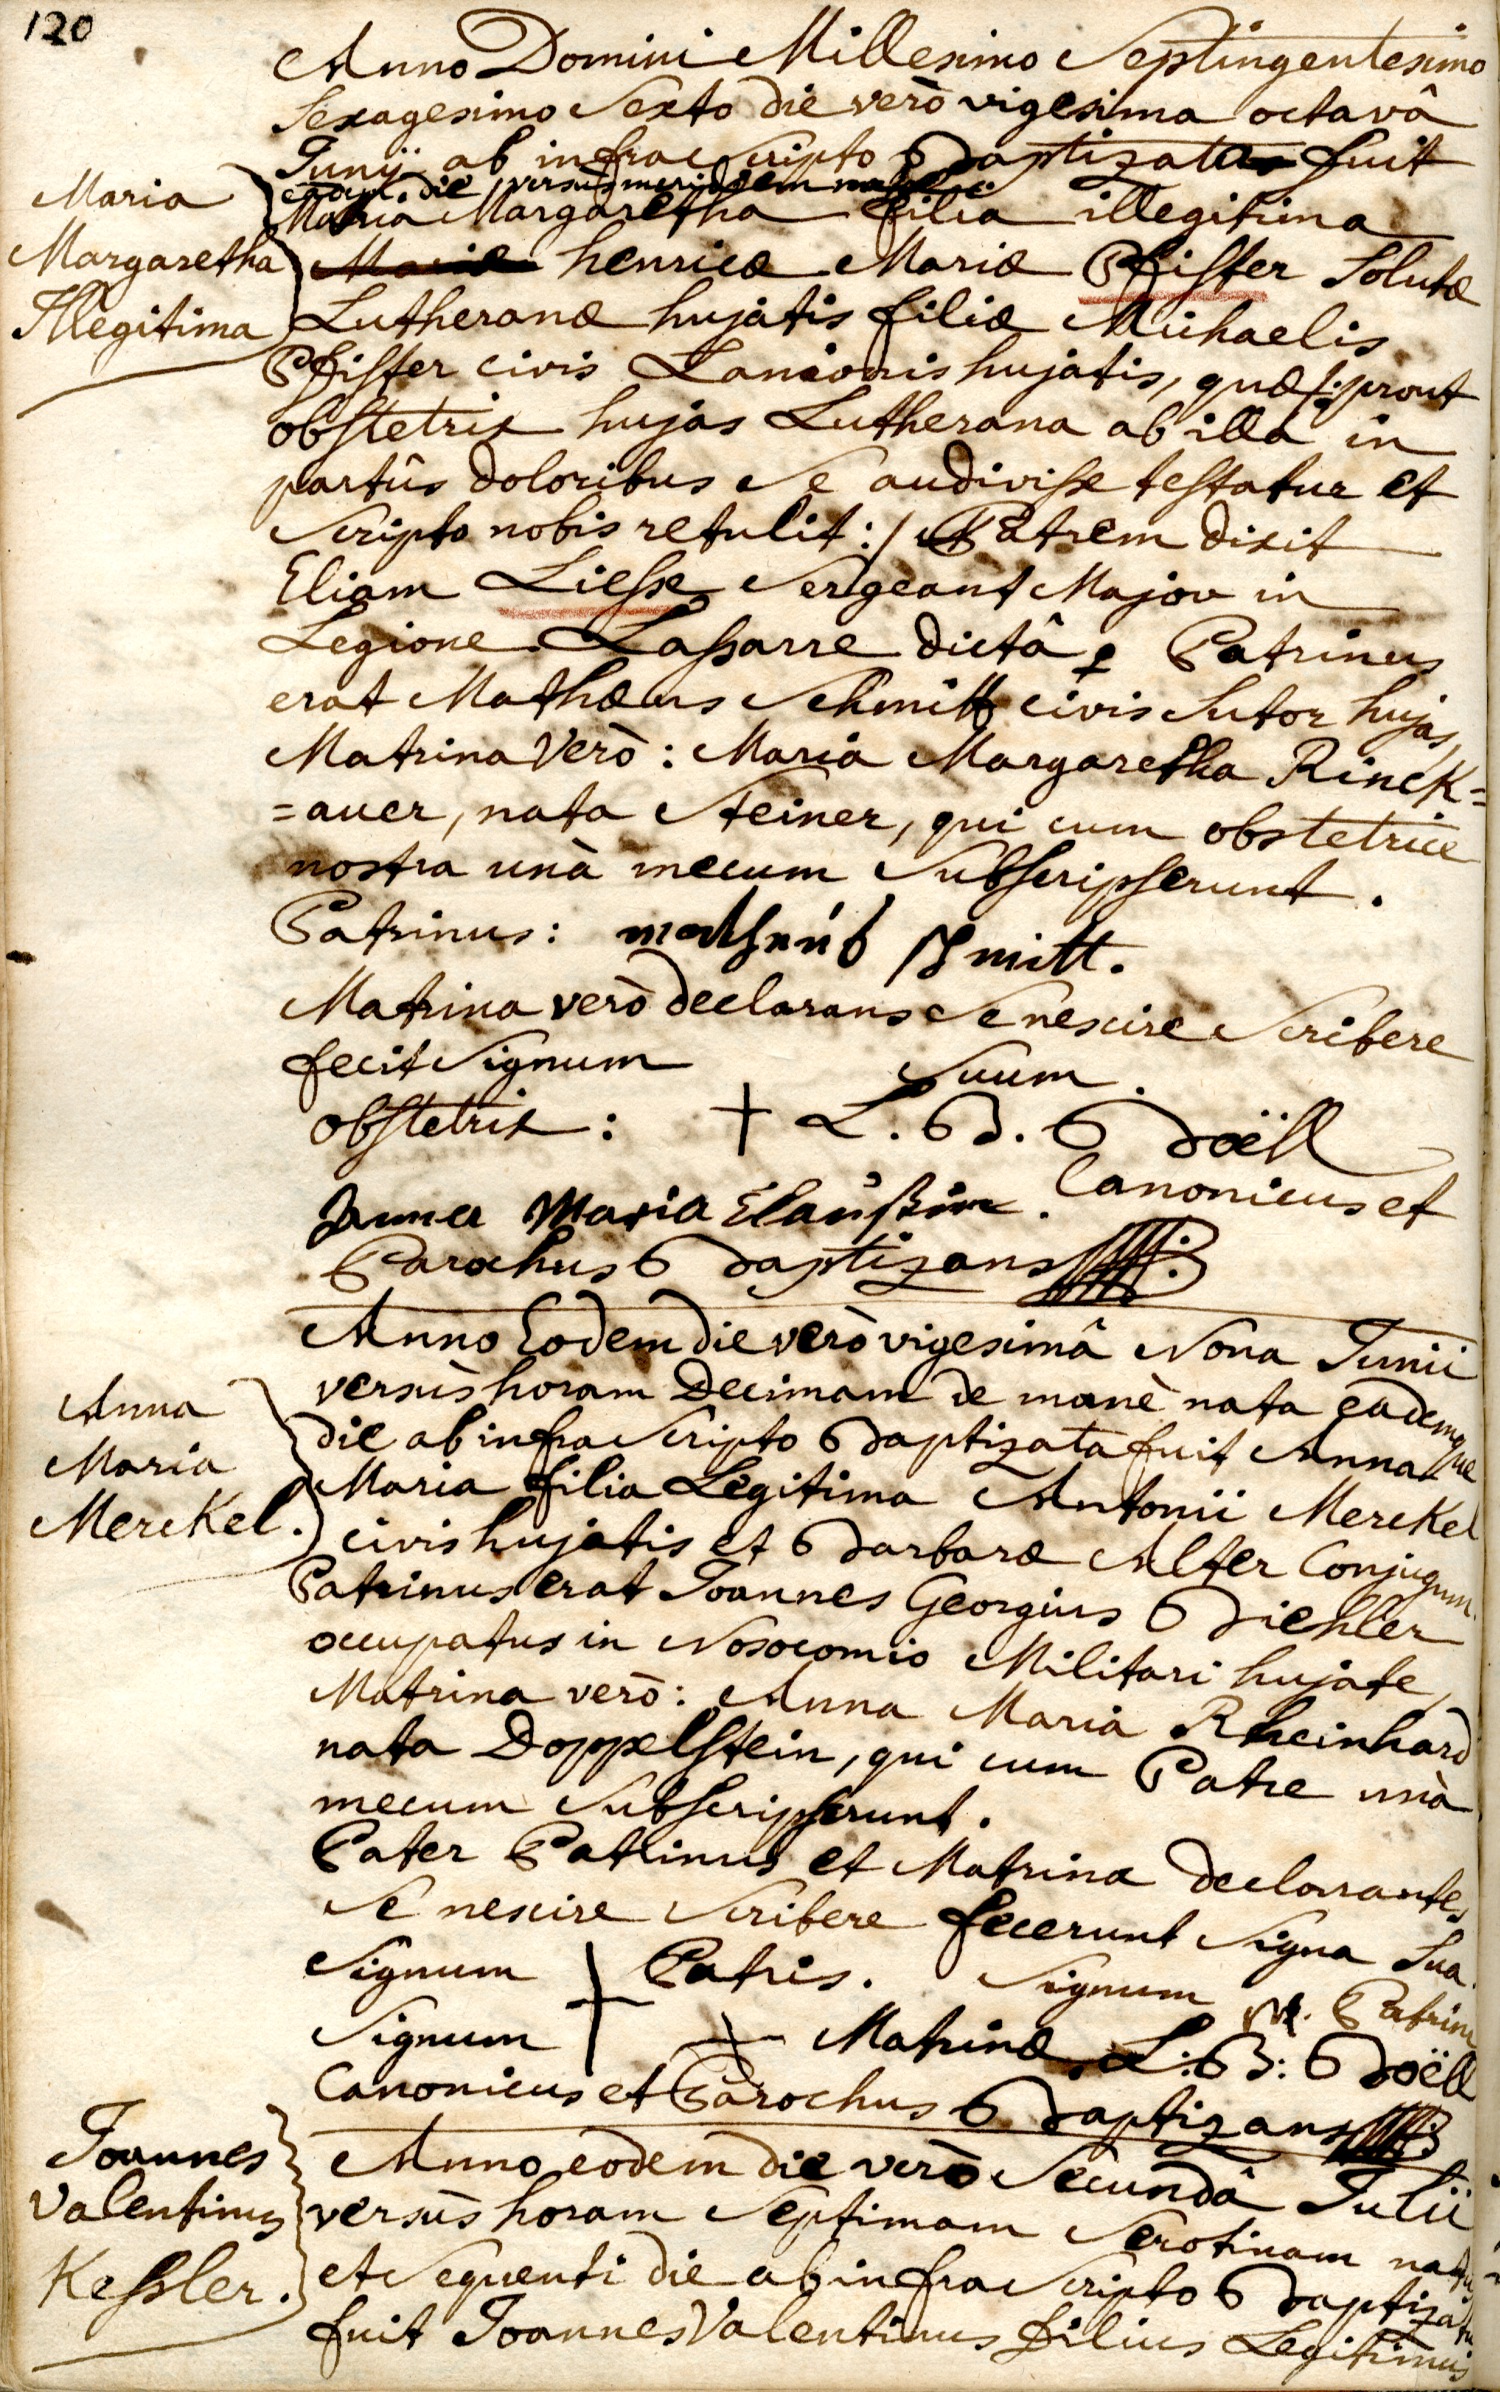 120
Anno Domini Millesimo Septingentesimo
Sexagesimo Sexto die verò vigesima octavâ
Junij ab infra Scripto Baptizata fuit
eadem die versùs meridiem nata
Maria Margaretha filia illegitima
Maria
Margaretha
Illegitima
Mariæ henricæ Mariæ Pfister Solutæ
Lutheranæ hujatis filiæ Michaelis
Pfister civis Lanionis hujatis, quæ /: prout
obstetrix hujas Lutherana ab illa in
partûs doloribus Se audivisse testatur et
Scripto nobis retulit :/ Patrem dixit
Eliam Liesse Sergeant Major in
Legione Lassarre dictâ, Patrinus
erat Mathæus Schmitt civis Sutor hujas,
Matrina Verò: Maria Margaretha Rinck=
=auer, nata Steiner, qui cum obstetrice
nostra unà mecum Subscripserunt.
Patrinus: matheus schmitt.
Matrina verò declarans Se nescire Scribere
fecit Signum Suum.
obstetrix: + L. B. Boëll
Canonicus et
Anna Maria Claußin.
Parochus Baptizans
Anno Eodem die verò vigesimâ Nona Junii
versùs horam Decimam de manè nata eademque
die ab infra Scripto Baptizata fuit Anna
Anna
Maria
Merckel.
Maria filia Legitima Antonii Merckel
civis hujatis et Barbaræ Alter Conjugum.
Patrinus erat Joannes Georgius Biehler
occupatus in Nosocomio Militari hujate,
Matrina verò: Anna Maria Rheinhard
nata Doppelstein, qui cum Patre unà
mecum Subscripserunt.
Pater Patrinus et Matrina declarantes
Se nescire Scribere fecerunt Signa Sua.
Signum + Patris. Signum Patrini
Signum + Matrinæ. L: B: Boëll
Canonicus et Parochus Baptizans
Joannes
Valentinus
Kessler.
Anno eodem die verò Secundâ Julii
versùs horam Septimam Serotinam natus
et Sequenti die ab infra Scripto Baptizatus
fuit Joannes Valentinus filius Legitimus